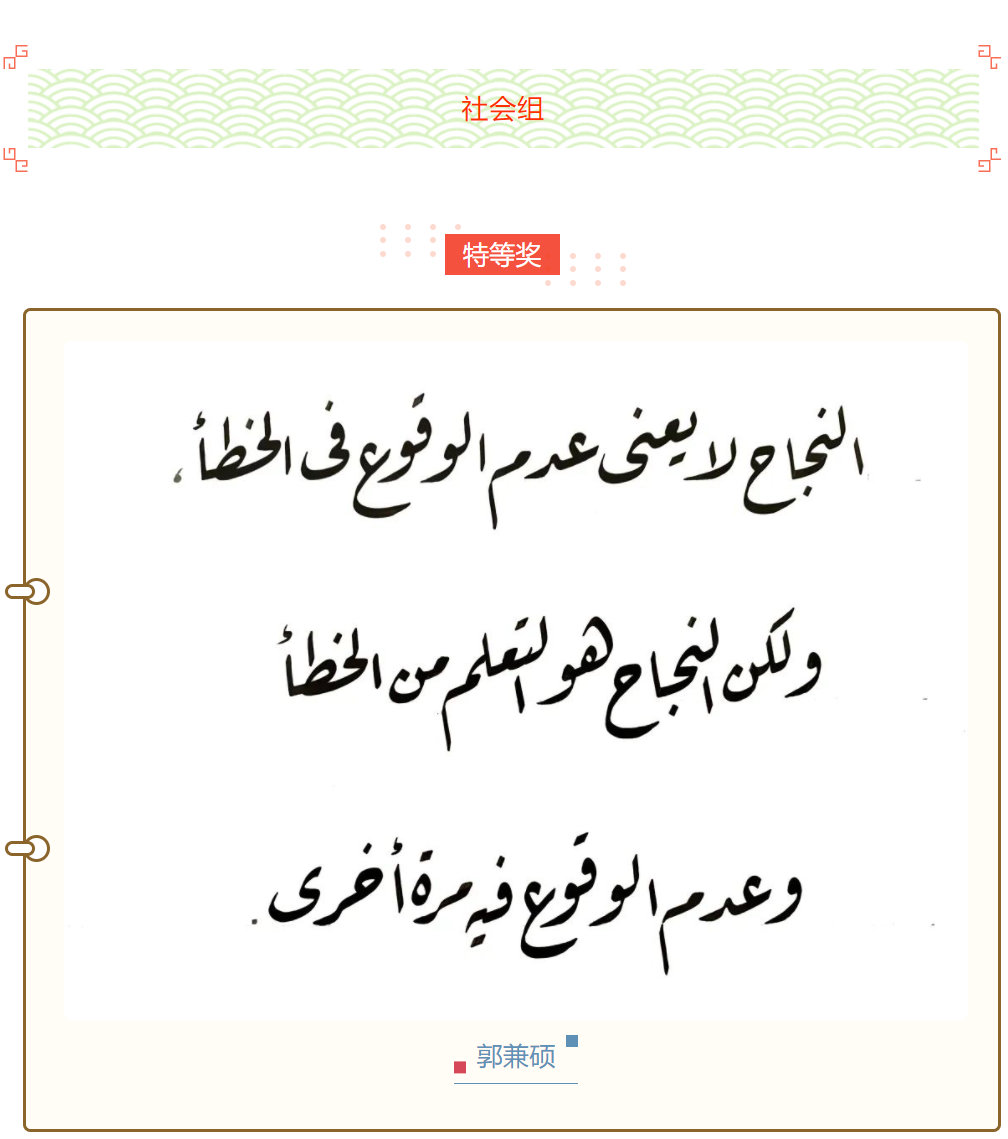 社会组
特等奖
النجاح لا يعنى عدم الوقوع فى الخطأ،
ولكن النجاح هو التعلم من الخطأ
وعدم الوقوع فيه مرة أخرى.
郭兼硕